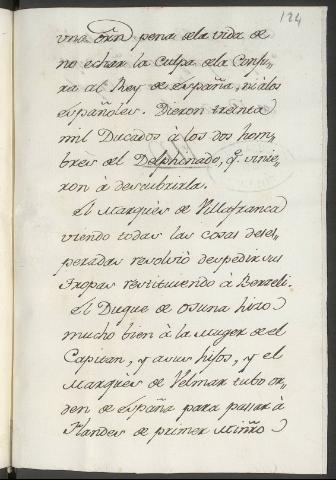 124
una orñ pena de la vida de
no echar la culpa de la Conju-
ra al Rey de españa, ni à los
españoles. Dieron treinta
mil Ducados à los dos hom-
bres del Delphinado, q.e vinie-
ron à descubrirla.
El Marquès de Villafranca
viendo todas las cosas deses-
peradas resolviò despedir sus
Tropas restituiendo à Berzeli.
El Duque de osuna hizo
mucho bien à la Muger de el
Capitan, y a sus hijos, y el
Marquès de Velmar tubo or-
den de españa para passar à
Flandes de primer Miñro